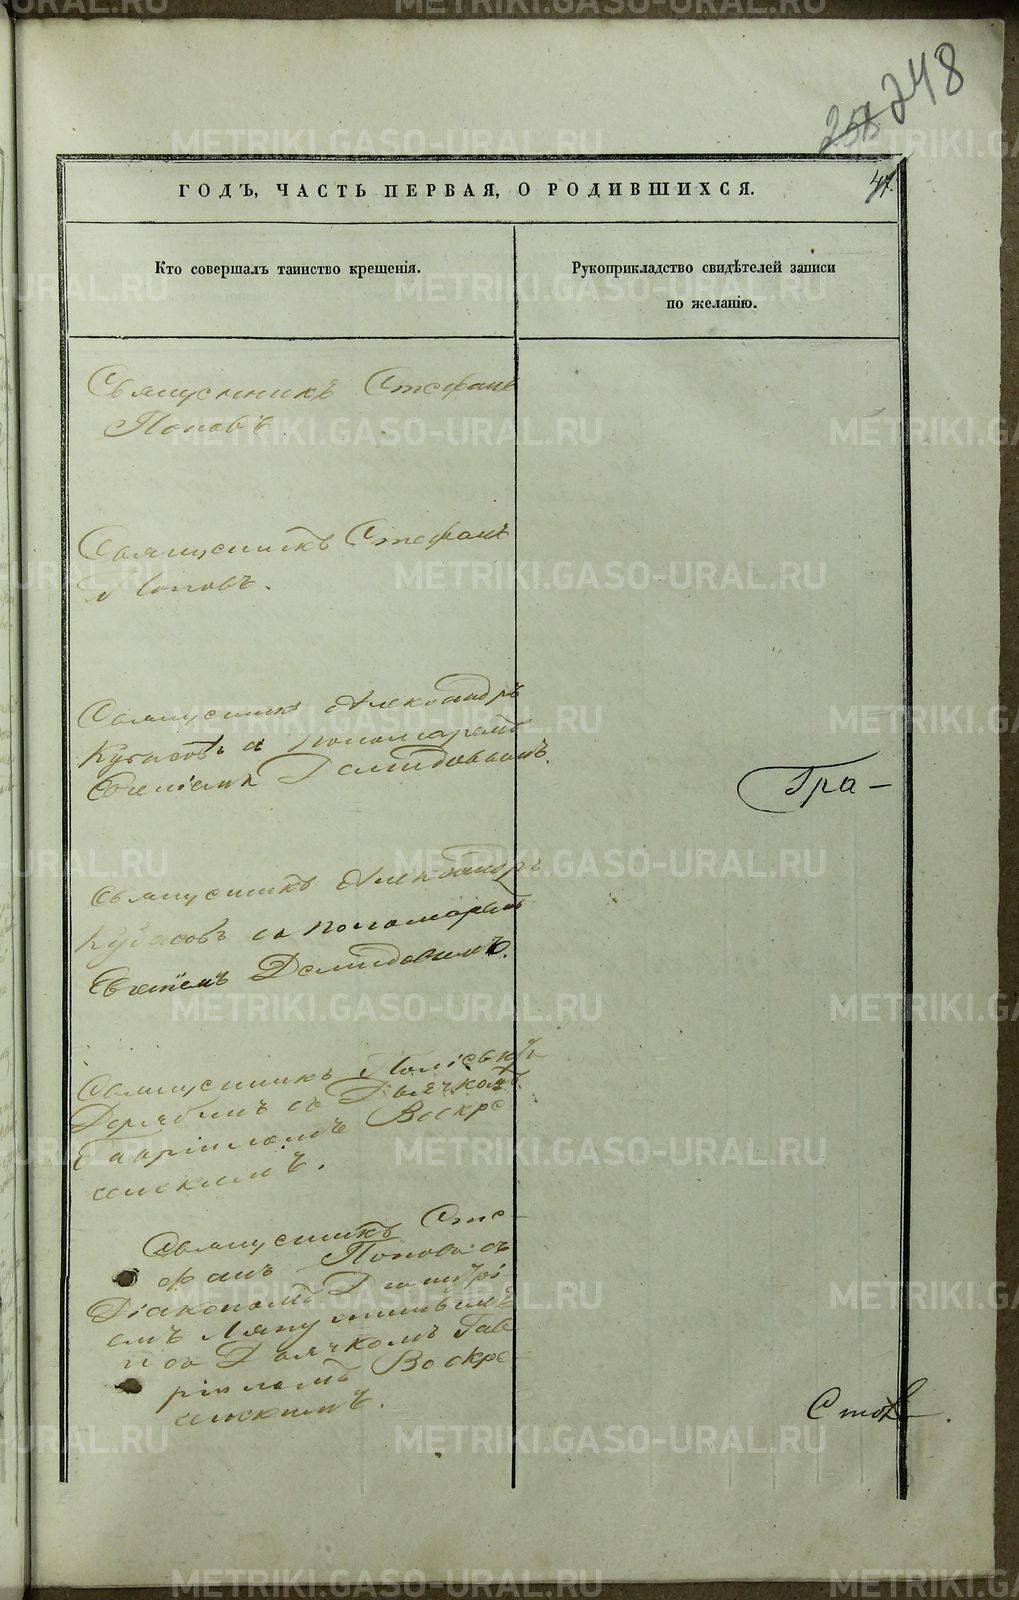 248
47.
ГОДЪ, ЧАСТЬ ПЕРВАЯ, О РОДИВШИХСЯ.
Кто совершалъ таинство крещенія.
Рукоприкладство свидѣтелей записи
по желанію.
Священникъ Стефанъ
Поповъ.
Священникъ Стефанъ
Поповъ.
Священникъ Александръ
съ пономаремъ
Евгеніемъ Демидовымъ.
Гра-
Священникъ Александръ
съ пономаремъ
Евгеніемъ Демидовымъ.
Священникъ
Дерябинъ съ Дьячкомъ
Гавріиломъ Воскре
сенскимъ.
Священникъ Сте-
фанъ Поповъ съ
Діакономъ Димитрі
емъ
и съ Дьячкомъ Гав
ріиломъ Воскре-
сенскимъ.
METRIKI.GASO-URAL.RU